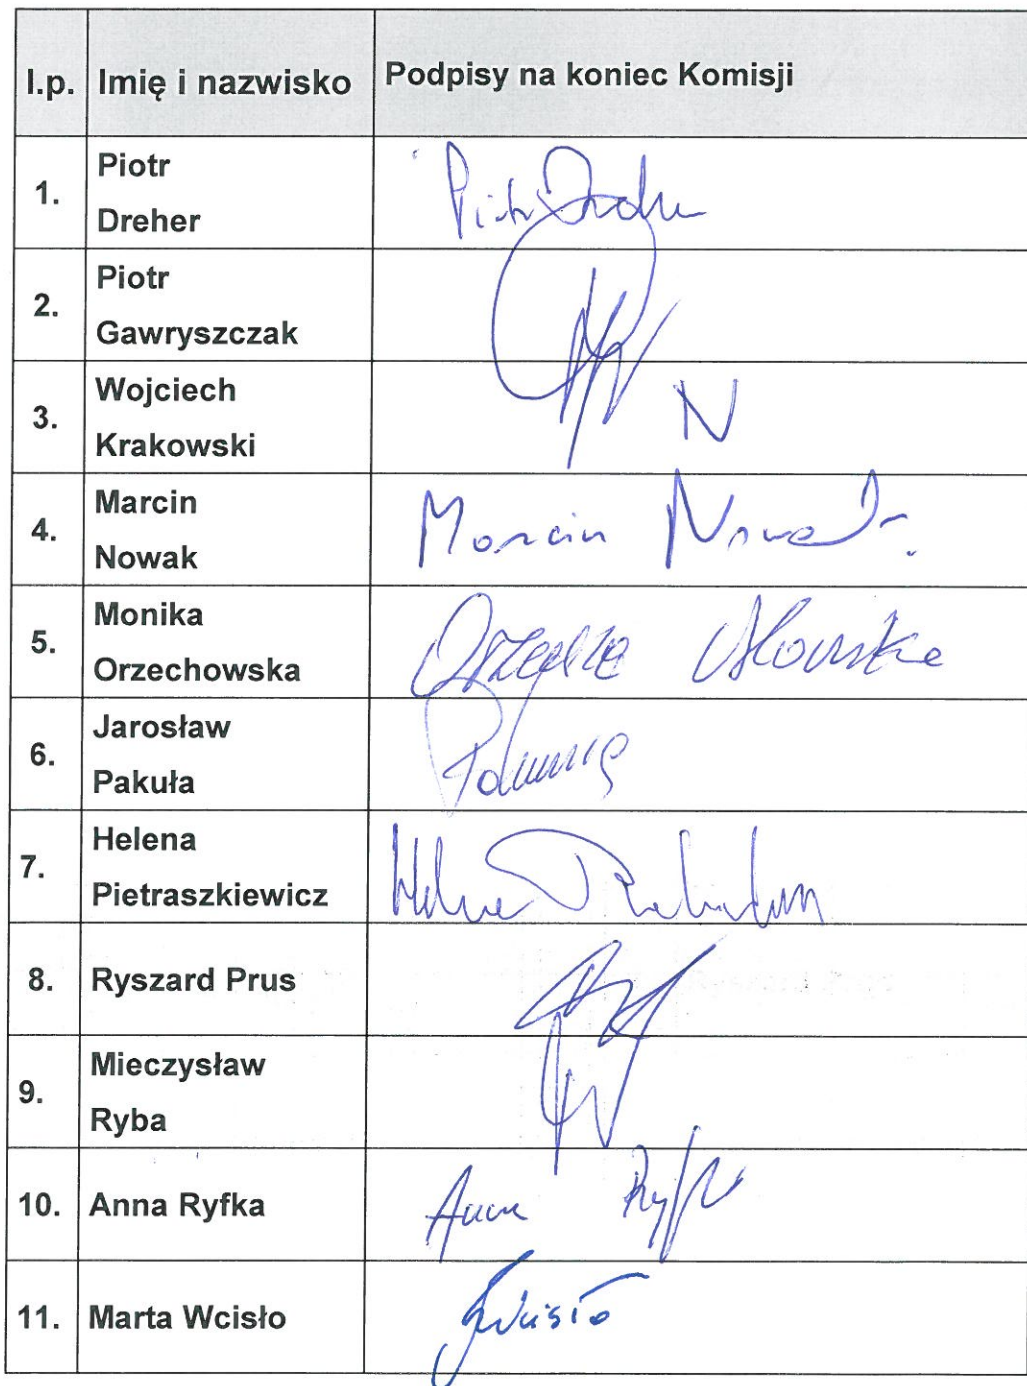 l.p. Imię i nazwisko Podpisy na koniec Komisji
1. Piotr Dreher Piotr
2. Piotr Gawryszczak
3. Wojciech Krakowski N
4. Marcin Nowak Marcin Nowak
5. Monika Orzechowska
6. Jarosław Pakuła
7. Helena Pietraszkiewicz
8. Ryszard Prus
9. Mieczysław Ryba
10. Anna Ryfka Anna
11. Marta Wcisło Wcisło